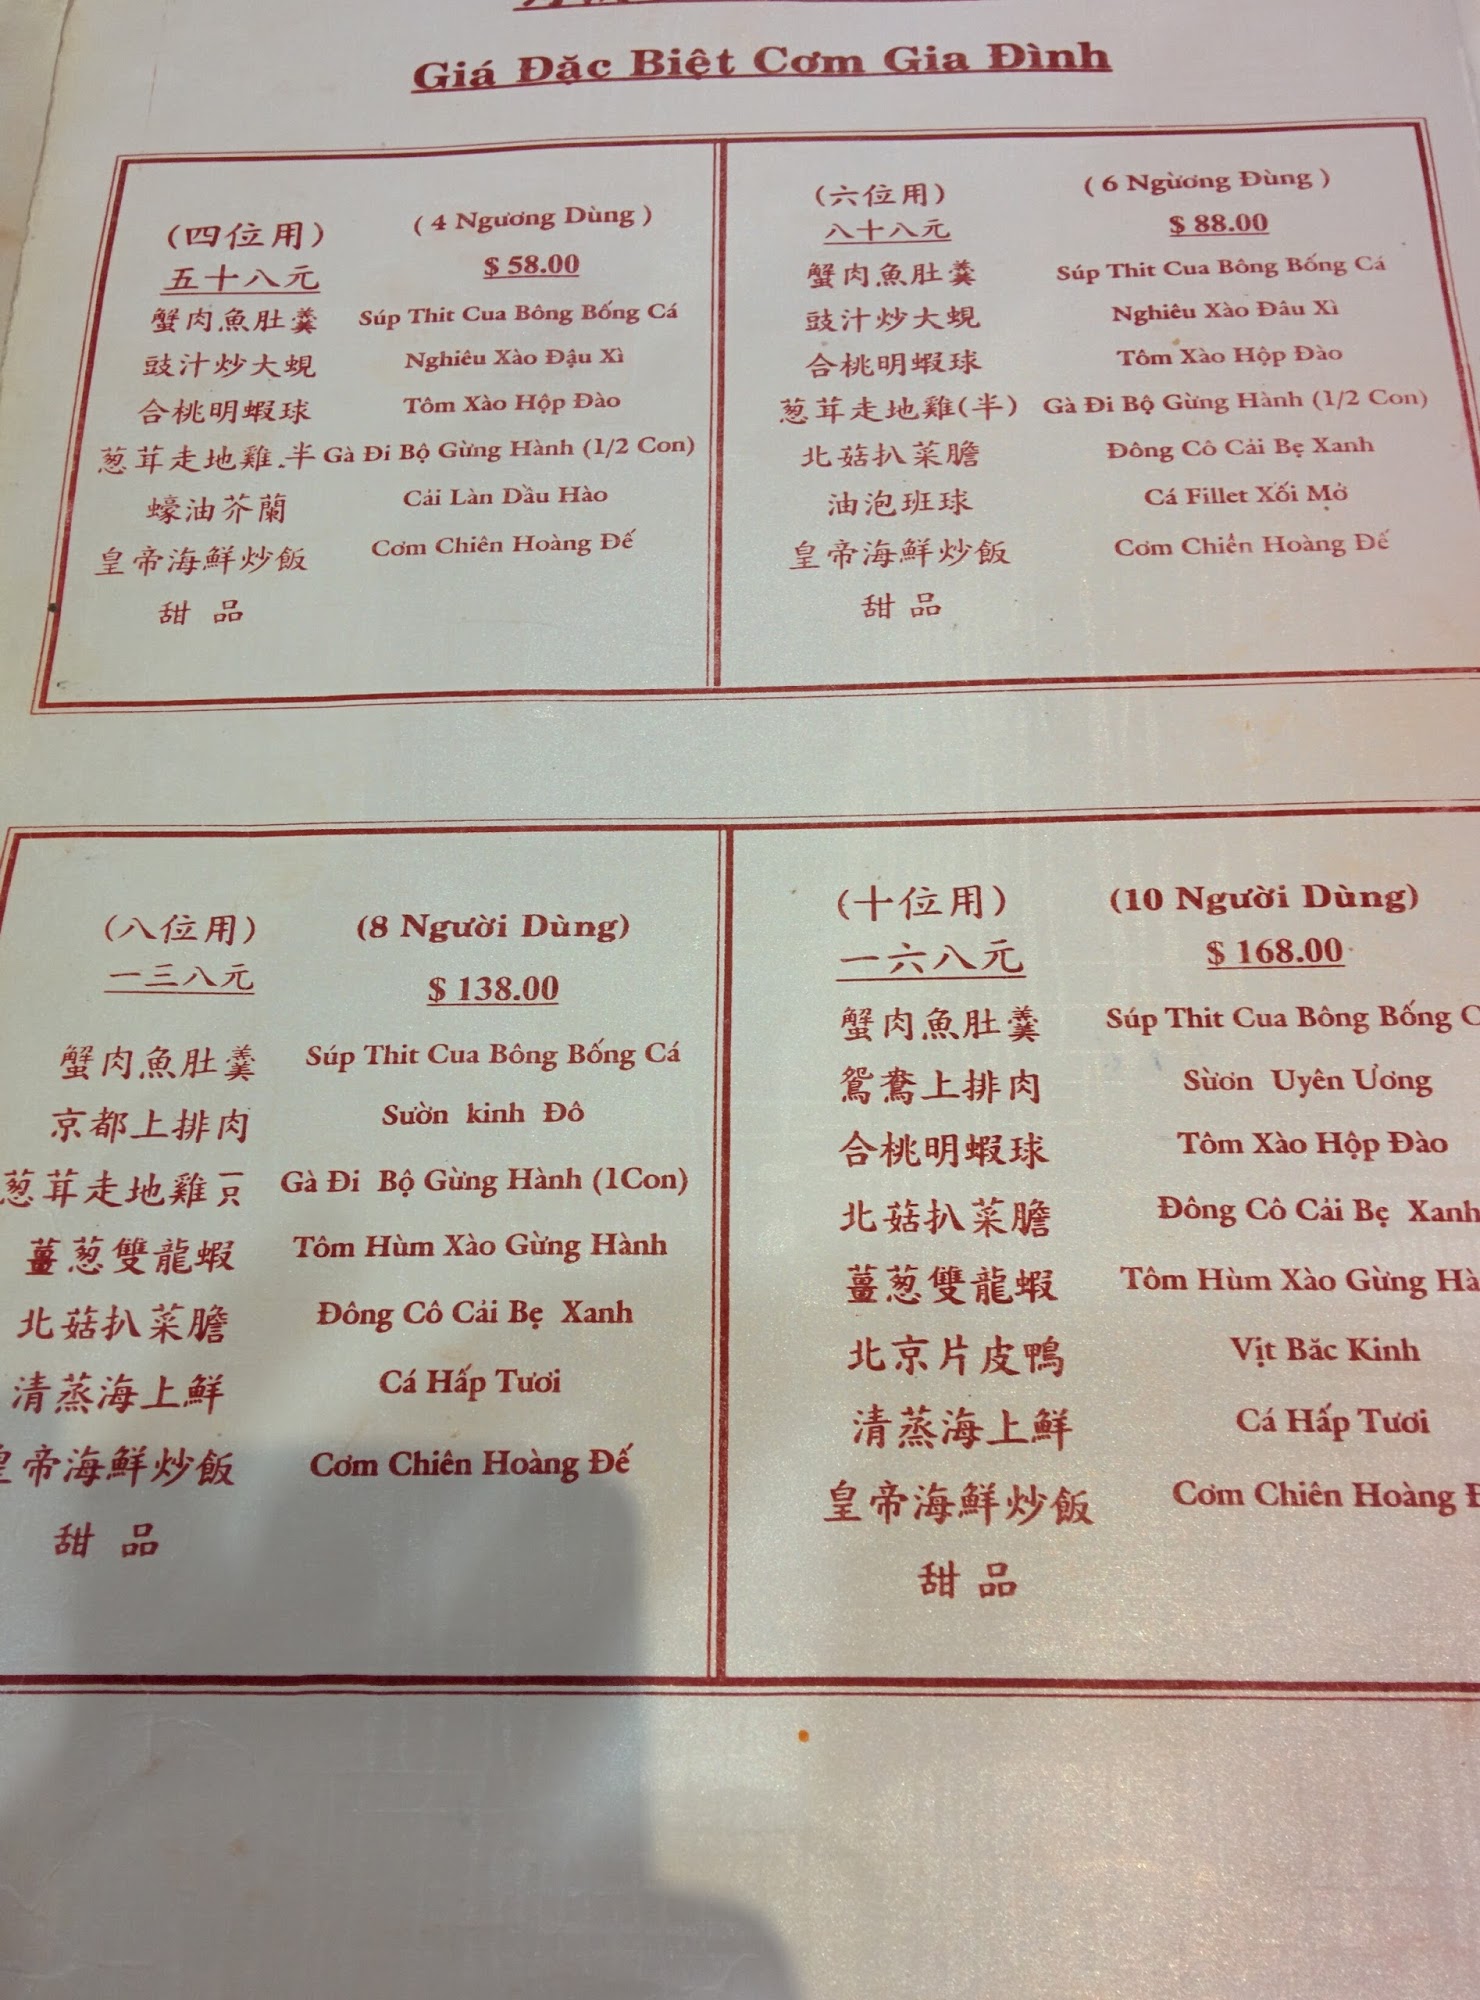 Giá Đặc Biệt Cơm Gia Đình
(四位用) ( 4 Ngương Dùng )
五十八元 $ 58.00
蟹肉魚肚羹 Súp Thit Cua Bông Bống Cá
豉汁炒大蜆 Nghiêu Xào Đậu Xì
合桃明蝦球 Tôm Xào Hộp Đào
葱茸走地雞.半 Gà Đi Bộ Gừng Hành (1/2 Con)
蠔油芥蘭 Cải Làn Dầu Hào
皇帝海鮮炒飯 Cơm Chiên Hoàng Đế
甜 品
(六位用) ( 6 Ngừơng Dùng )
八十八元 $ 88.00
蟹肉魚肚羹 Súp Thit Cua Bông Bống Cá
豉汁炒大蜆 Nghiêu Xào Đâu Xì
合桃明蝦球 Tôm Xào Hộp Đào
葱茸走地雞(半) Gà Đi Bộ Gừng Hành (1/2 Con)
北菇扒菜膽 Đông Cô Cải Bẹ Xanh
油泡班球 Cá Fillet Xối Mở
皇帝海鮮炒飯 Cơm Chiên Hoàng Đế
甜 品
(八位用) (8 Người Dùng)
一三八元 $ 138.00
蟹肉魚肚羹 Súp Thit Cua Bông Bống Cá
京都上排肉 Sườn kinh Đô
葱茸走地雞一只 Gà Đi Bộ Gừng Hành (1Con)
薑葱雙龍蝦 Tôm Hùm Xào Gừng Hành
北菇扒菜膽 Đông Cô Cải Bẹ Xanh
清蒸海上鮮 Cá Hấp Tươi
皇帝海鮮炒飯 Cơm Chiên Hoàng Đế
甜 品
(十位用) (10 Người Dùng)
一六八元 $ 168.00
蟹肉魚肚羹 Súp Thit Cua Bông Bống C
鴛鴦上排肉 Sừơn Uyên Ương
合桃明蝦球 Tôm Xào Hộp Đào
北菇扒菜膽 Đông Cô Cải Bẹ Xanh
薑葱雙龍蝦 Tôm Hùm Xào Gừng Hà
北京片皮鴨 Vịt Băc Kinh
清蒸海上鮮 Cá Hấp Tươi
皇帝海鮮炒飯 Cơm Chiên Hoàng Đ
甜 品